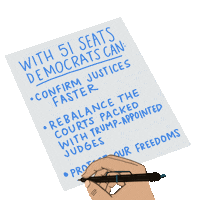 WITH 51 SEATS
DEMOCRATS CAN:
• CONFIRM JUSTICES
FASTER
• REBALANCE THE
COURTS PACKED
WITH TRUMP-APPOINTED
JUDGES
• PROTECT OUR FREEDOMS